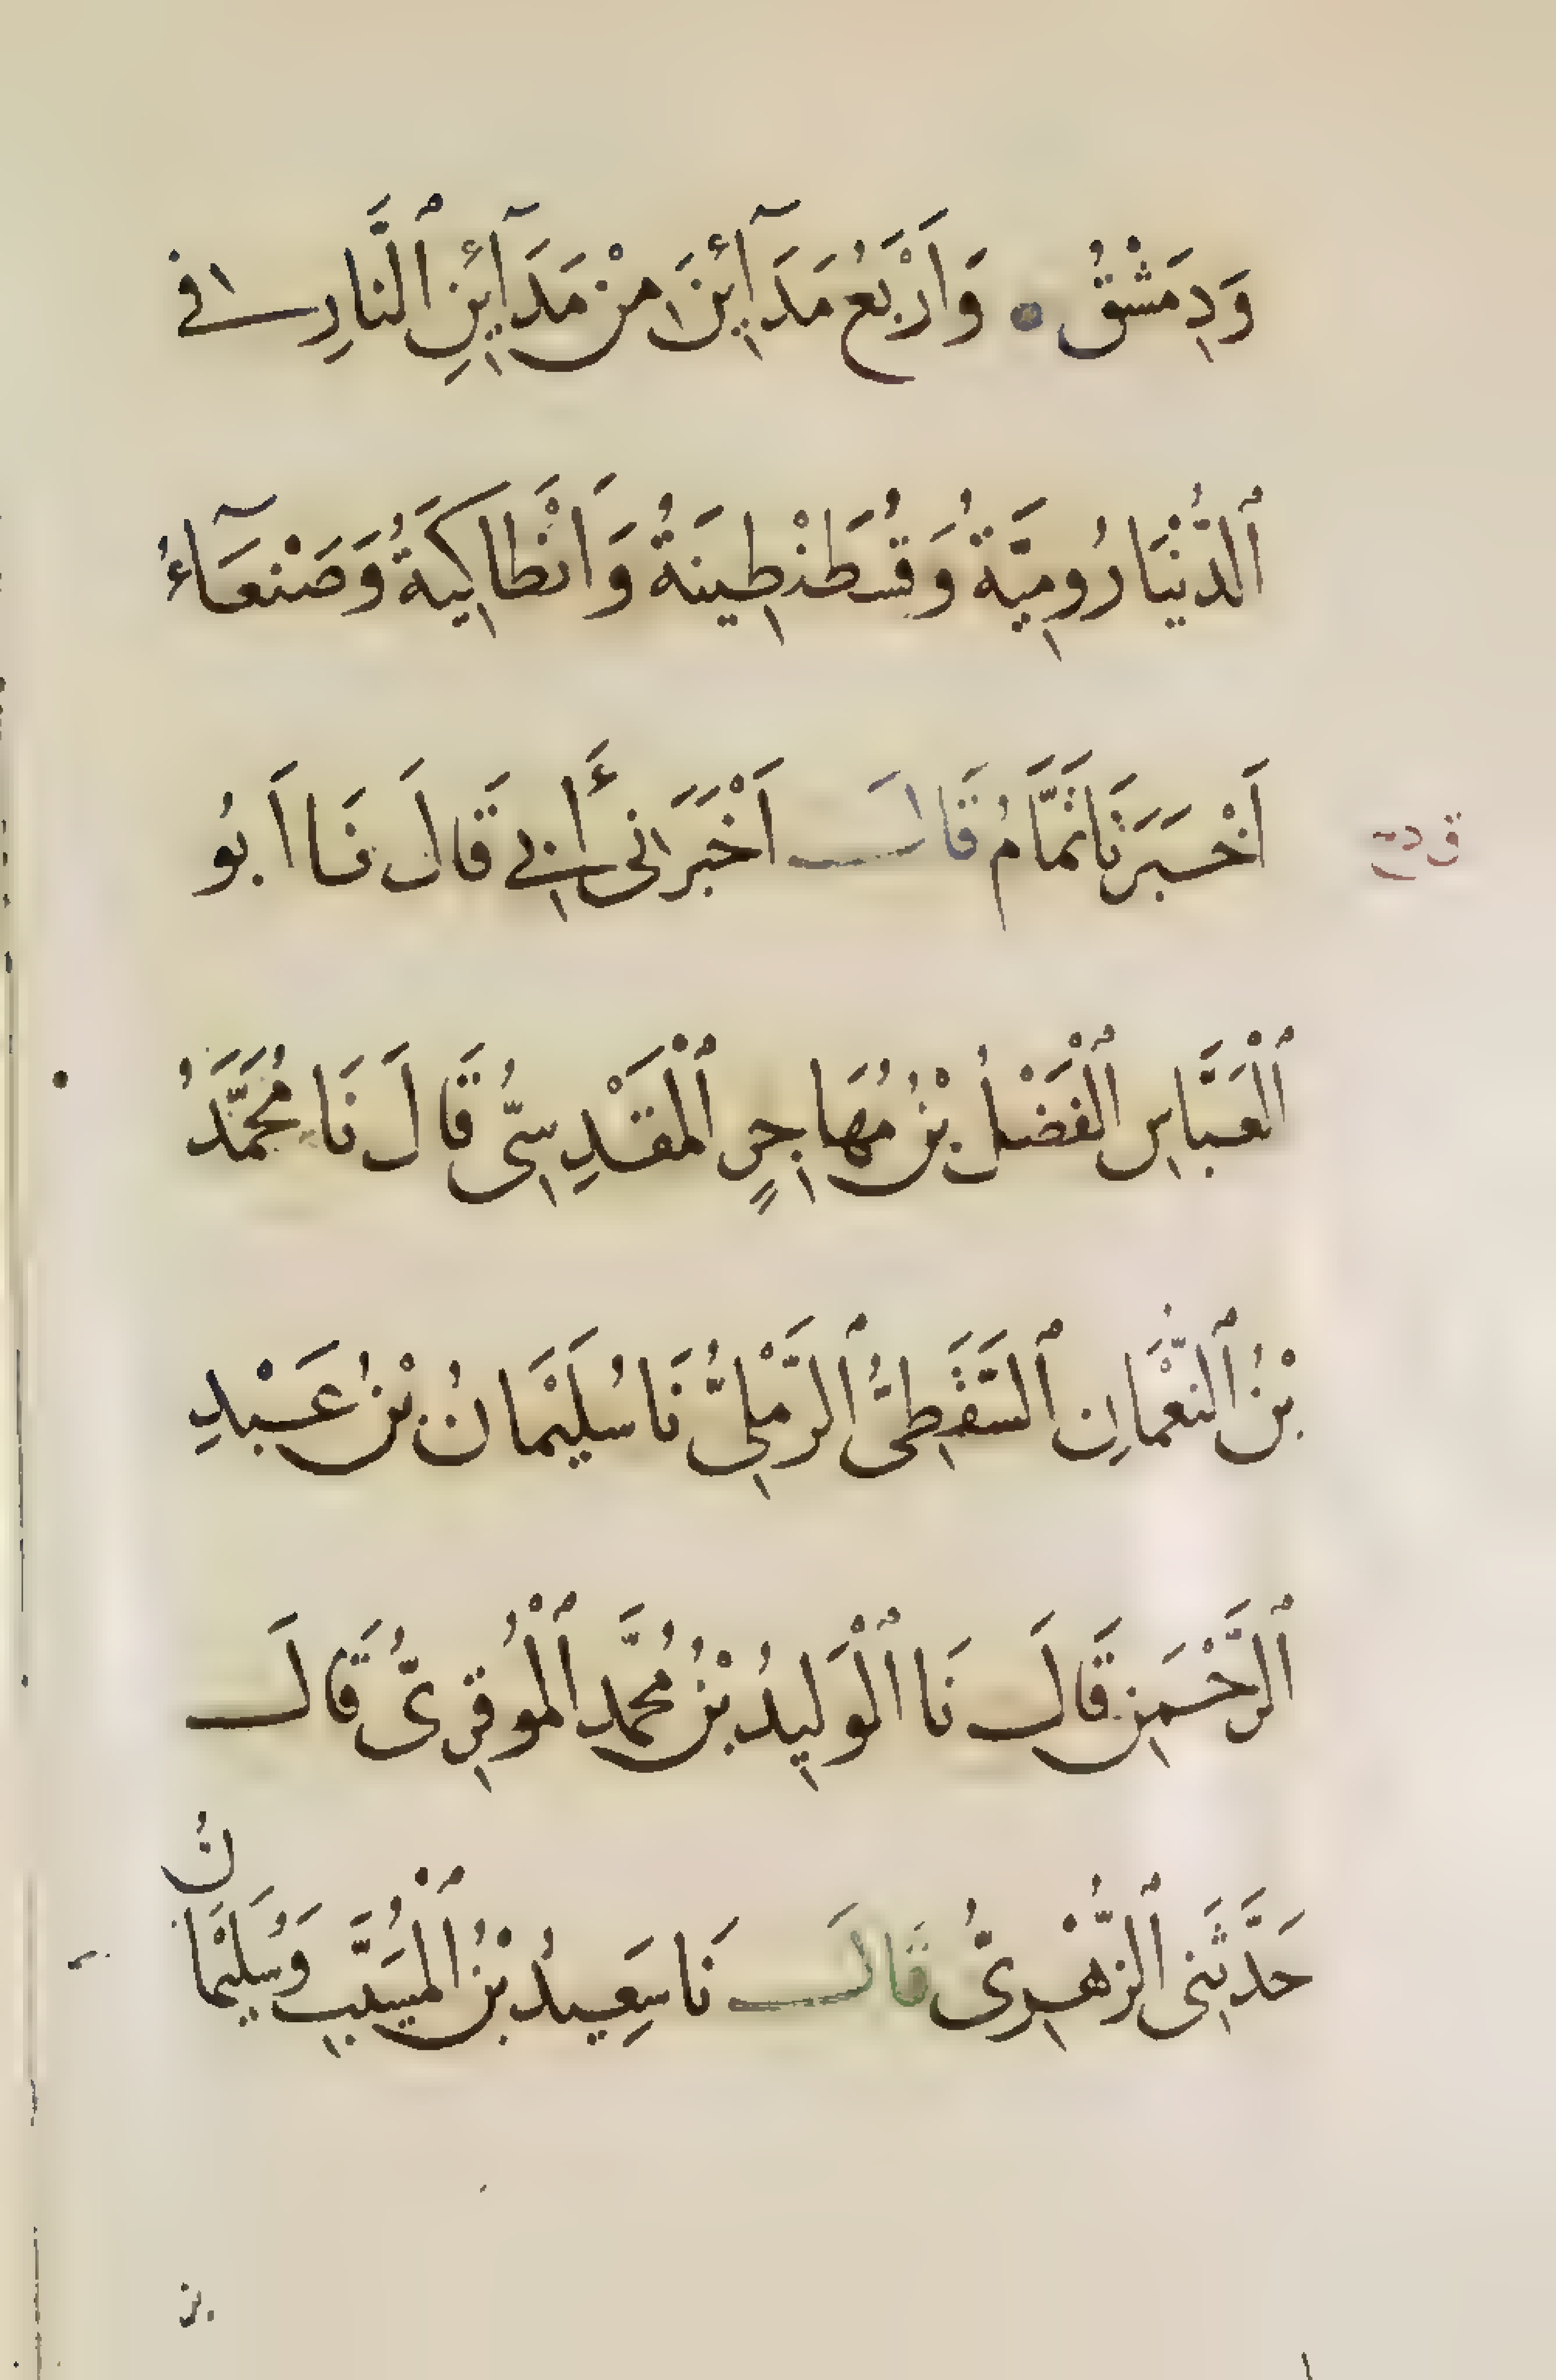 وَدِمَشْقُ وَاَرْبَعُ مَدَآئِنَ مِنْ مَدَآئِنِ ٱلنَّارِ فِي
ٱلدُّنْيَا رُومِيَّةُ وَقُسْطَنْطِينَةُ وَاَنْطَاكِيَةُ وَصَنْعَآءُ
اَخْبَرَنَا تَمَّامُ قَالَ اَخْبَرَنِى أَبِي قَالَ نَا اَبُو
ٱلْعَبَّاسِ ٱلْفَضْلُ بْنُ مُهَاجِرٍ ٱلْمَقْدِسِىُّ قَالَ نَا مُحَمَّدُ
بْنُ ٱلنُّعْمَانِ ٱلسَّقَطِىُّ ٱلرَّمْلِىُّ نَا سُلَيْمَانُ بْنُ عَبْدِ
ٱلرَّحْمَنِ قَالَ نَا ٱلْوَلِيدُ بْنُ مُحَمَّد ٱلْمُوقِرِىُّ قَالَ
حَدَّثَنِى ٱلزُّهْرِىُّ قَالَ نَا سَعِيدُ بْنُ ٱلْمُسَيَّبِ وَسُلَيْمَانُ
بن